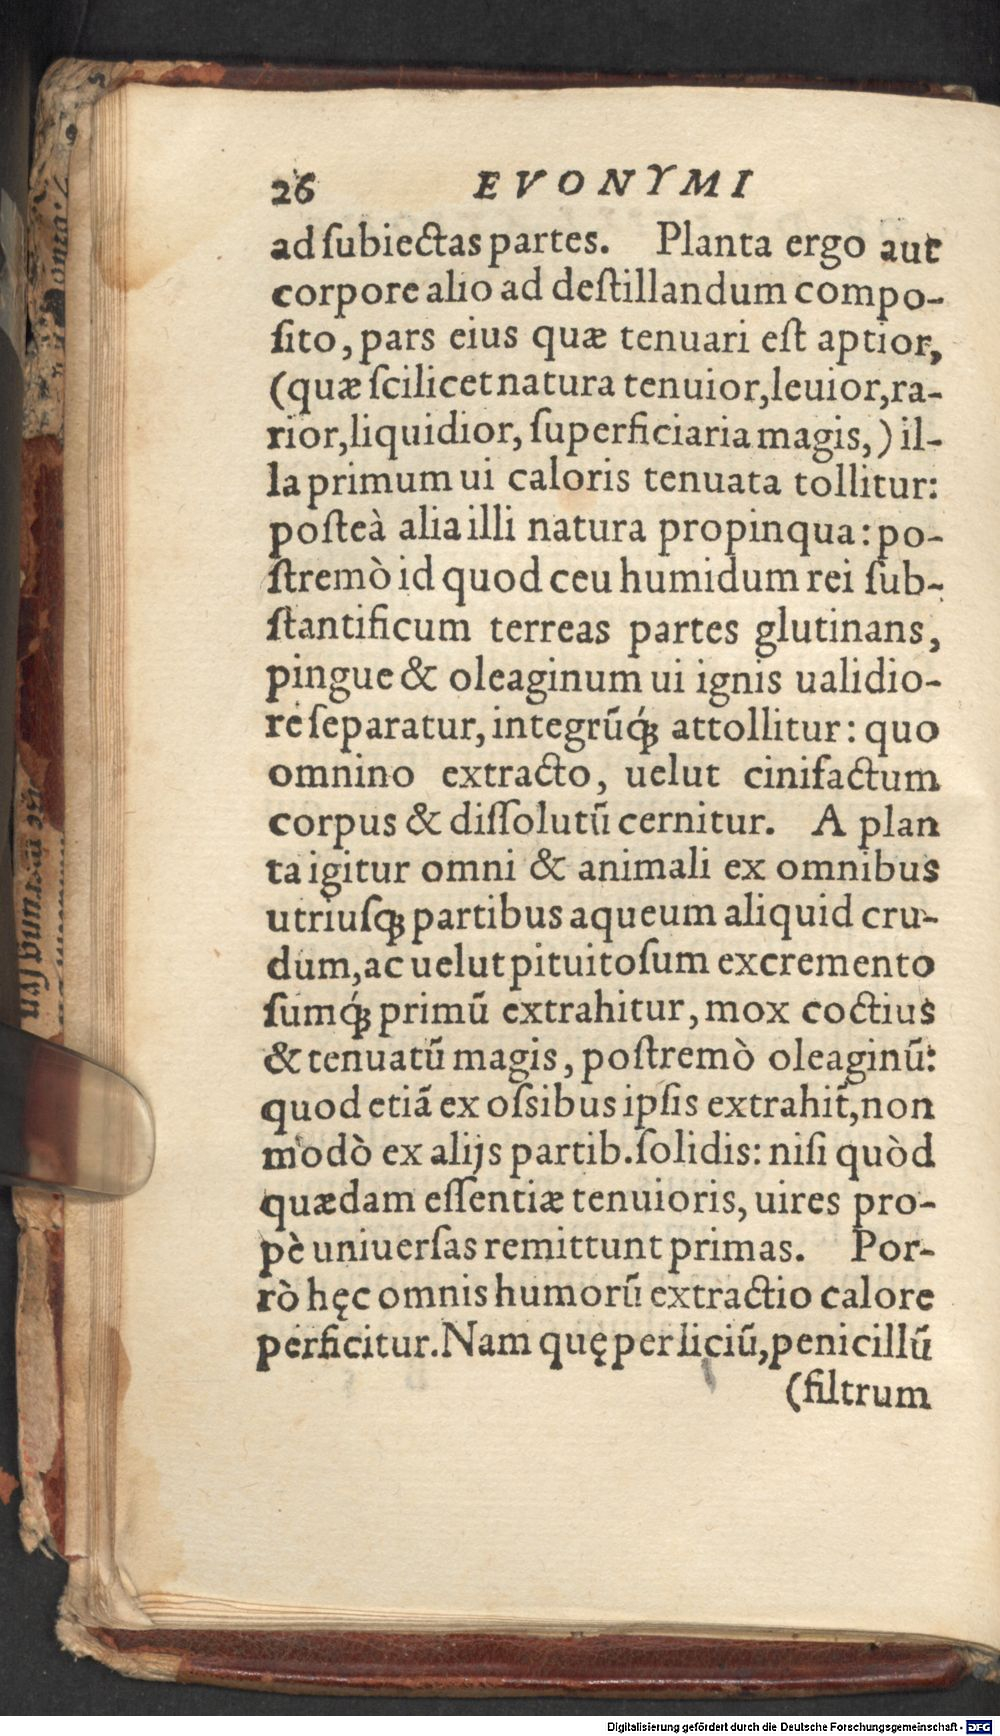 26 EVONYMI
ad ſubiectas partes. Planta ergo aut
corpore alio ad deſtillandum compo-
ſito, pars eius quæ tenuari eſt aptior,
(quæ ſcilicet natura tenuior, leuior, ra-
rior, liquidior, ſuperficiaria magis,) il-
la primum ui caloris tenuata tollitur:
poſteà alia illi natura propinqua: po-
ſtremò id quod ceu humidum rei ſub-
ſtantificum terreas partes glutinans,
pingue & oleaginum ui ignis ualidio-
re ſeparatur, integrũq́; attollitur: quo
omnino extracto, uelut cinifactum
corpus & diſſolutũ cernitur. A plan
ta igitur omni & animali ex omnibus
utriuſq; partibus aqueum aliquid cru-
dum, ac uelut pituitoſum excremento
ſumq́; primũ extrahitur, mox coctius
& tenuatũ magis, poſtremò oleaginũ:
quod etiã ex oſsibus ipſis extrahit̃, non
modò ex alijs partib. ſolidis: niſi quòd
quædam eſſentiæ tenuioris, uires pro-
pè uniuerſas remittunt primas. Por-
rò hęc omnis humorũ extractio calore
perficitur. Nam quę per liciũ, penicillũ
(filtrum
Digitalisierung gefördert durch die Deutsche Forschungsgemeinschaft - DFG